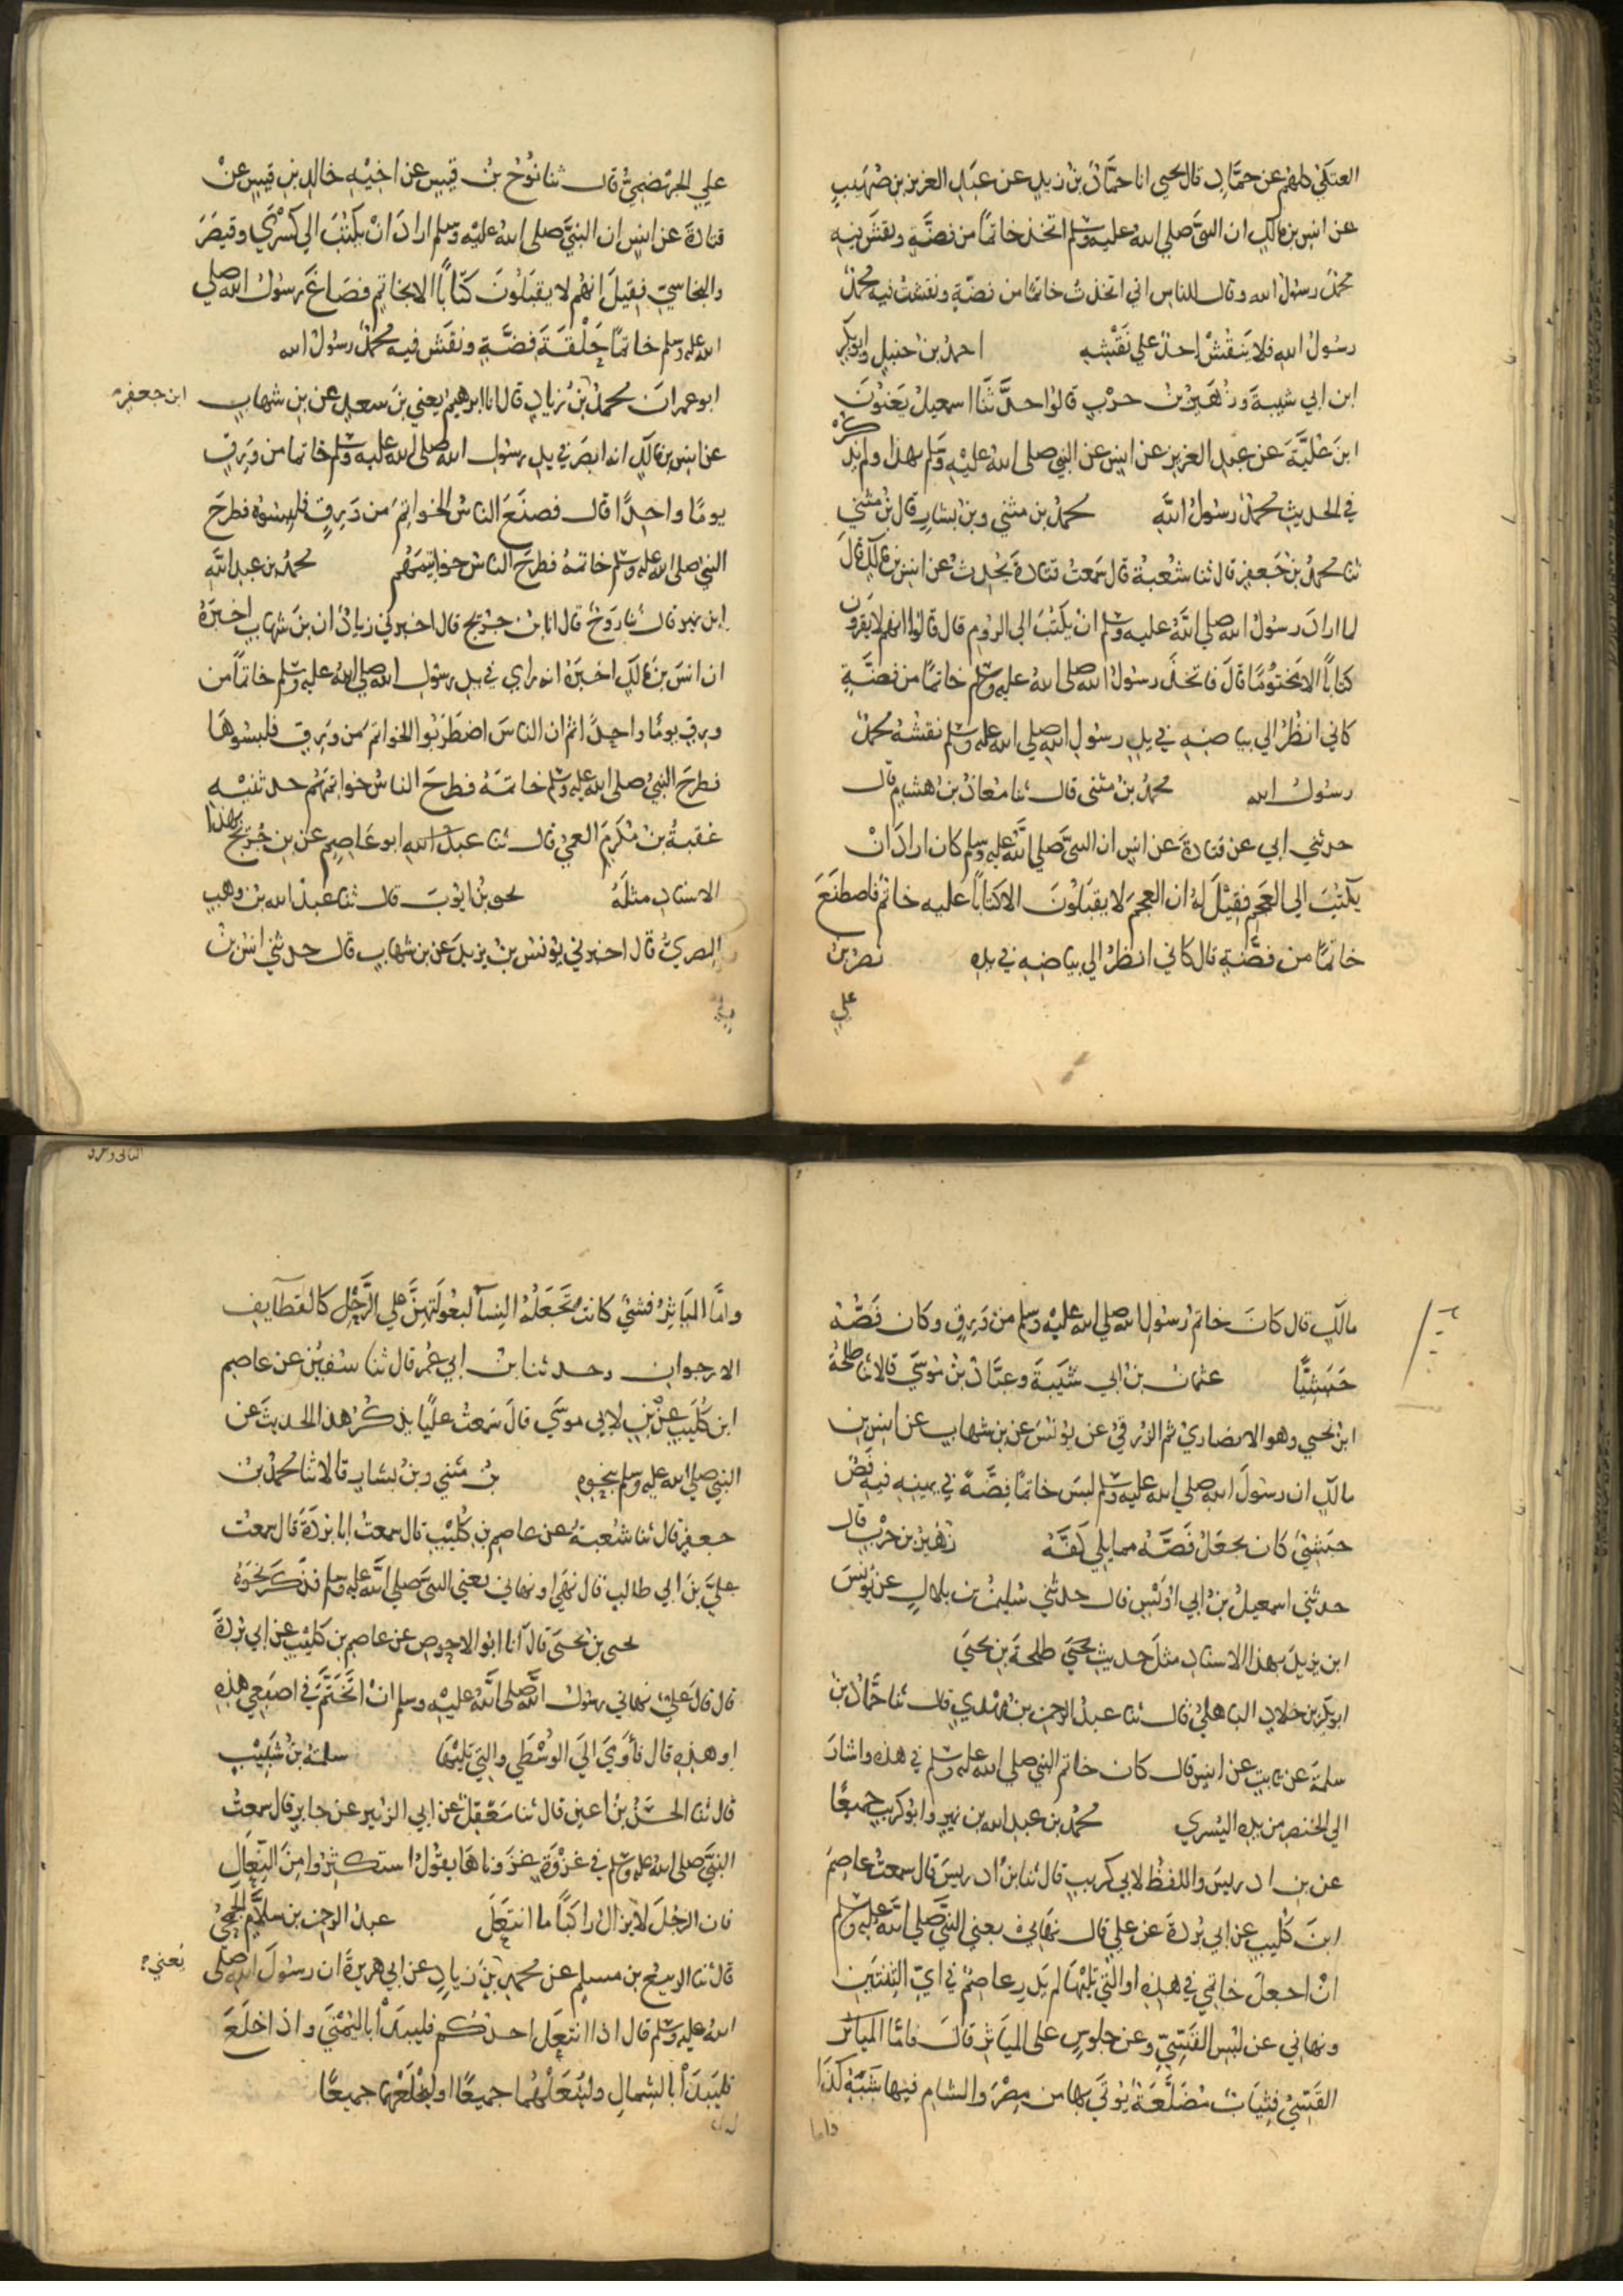 العتكي كلهم عن حماد قال يحيى انا حماد بن زيد عن عبد العزيز بن صهيب
عن انس بن مالك ان النبي صلى الله عليه وسلم اتخذ خاتما من فضة ونقش فيه
محمد رسول الله وقال للناس اني اتخذت خاتما من فضة ونقشت فيه محمد
رسول الله فلا ينقش احد على نقشه احمد بن حنبل وابو بكر
ابن ابي شيبة وزهير بن حرب قالوا حدثنا اسمعيل يعنون
ابن علية عن عبد العزيز عن انس عن النبي صلى الله عليه وسلم بهذا ولم يذكر
في الحديث محمد رسول الله محمد بن مثني وبن بشار قال بن مثني
ثنا محمد بن جعفر قال ثنا شعبة قال سمعت قتادة يحدث عن انس بن مالك قال
لما اراد رسول الله صلى الله عليه وسلم ان يكتب الى الروم قال قالوا انهم لا يقرون
كتابا الا مختوما قال فاتخذ رسول الله صلى الله عليه وسلم خاتما من فضة
كاني انظر الي بياضه في يد رسول الله صلى الله عليه وسلم نقشه محمد
رسول الله محمد بن مثنى قال ثنا معاذ بن هشام قال
حدثني ابي عن قتادة عن انس ان النبي صلى الله عليه وسلم كان اراد ان
يكتب الي العجم فقيل له ان العجم لا يقبلون الا كتابا عليه خاتم فاصطنع
خاتما من فضة قال كاني انظر الي بياضه في يده نصر بن
علي
علي الجهضمي قال ثنا نوح بن قيس عن اخيه خالد بن قيس عن
قتادة عن انس ان النبي صلى الله عليه وسلم اراد ان يكتب الي كسري وقيصر
والنجاسي فقيل انهم لا يقبلون كتابا الا بخاتم فصاغ رسول الله صلي
الله عليه وسلم خاتما حلقة فضة ونقش فيه محمد رسول الله
ابو عمران محمد بن زياد قال انا ابرهيم يعني بن سعد عن بن شهاب ابن جعفر
عن انس بن مالك انه ابصر في يد رسول الله صلى الله عليه وسلم خاتما من ورق
يوما واحدا قال فصنع الناس الخواتم من ورق فلبسوه فطرح
النبي صلى الله عليه وسلم خاتمه فطرح الناس خواتيمهم محمد بن عبد الله
ابن نمير قال ثنا روح قال انا بن جريج قال اخبرني زياد ان بن شهاب اخبره
ان انس بن مالك اخبره انه راي في يد رسول الله صلى الله عليه وسلم خاتما من
ورق يوما واحدا ثم ان الناس اضطربوا الخواتم من ورق فلبسوها
فطرح النبي صلى الله عليه وسلم خاتمه فطرح الناس خواتمهم حدثنيه
عقبة بن مكرم العمي قال ثنا عبد الله ابو عاصم عن بن جريج بهذا
الاسناد مثله يحيى بن ايوب قال ثنا عبد الله بن وهب
المصري قال اخبرني يونس بن يزيد عن بن شهاب قال حدثني انس بن
مالك قال كان خاتم رسول الله صلى الله عليه وسلم من ورق وكان فصه
حبشيا عثمان بن ابي شيبة وعباد بن موسي قالا ثنا طلحة
ابن يحيي وهو الانصاري ثم الزرقي عن يونس عن بن شهاب عن انس بن
مالك ان رسول الله صلى الله عليه وسلم لبس خاتما فضة في يمينه فيه فص
حبشي كان يجعل فصه مما يلي كفه زهير بن حرب قال
حدثني اسمعيل بن ابي اويس قال حدثني سليمن بن بلال عن يونس
ابن يزيد بهذا الاسناد مثل حديث يحيى طلحة بن يحيي
ابو بكر بن خلاد الباهلي قال ثنا عبد الرحمن بن مهدي قال ثنا حماد بن
سلمة عن ثابت عن انس قال كان خاتم النبي صلى الله عليه وسلم في هذه واشار
الي الخنصر من يده اليسري محمد بن عبد الله بن نمير وابو كريب جميعا
عن بن ادريس واللفظ لابي كريب قال ثنا بن ادريس قال سمعت عاصم
ابن كليب عن ابي بردة عن علي قال نهاني يعني النبي صلى الله عليه وسلم
ان اجعل خاتمي في هذه او التي تليها لم يدر عاصم في اي الثنتين
ونهاني عن لبس القسي وعن جلوس على المياثر قال فاما المياثر
القسي فثياب مضلعة يوتي بها من مصر والشام فيها شبه كذا
واما
واما المياثر فشي كانت تجعله النسا لبعولتهن علي الرحل كالقطايف
الارجوان وحدثنا بن ابي عمر قال ثنا سفين عن عاصم
ابن كليب عن بن لابي موسي قال سمعت عليا يذكر هذا الحديث عن
النبي صلى الله عليه وسلم بنحوه بن مثني وبن بشار قالا ثنا محمد بن
جعفر قال ثنا شعبة عن عاصم بن كليب قال سمعت ابا بردة قال سمعت
علي بن ابي طالب قال نهي او نهاني يعني النبي صلى الله عليه وسلم فذكر نحوه
يحيى بن يحيى قال انا ابو الاحوص عن عاصم بن كليب عن ابي بردة
قال قال علي نهاني رسول الله صلى الله عليه وسلم ان اتختم في اصبعي هذه
او هذه قال فاومي الي الوسطي والتي تليها سلمة بن شبيب
قال ثنا الحسن بن اعين قال ثنا معقل عن ابي الزبير عن جابر قال سمعت
النبي صلى الله عليه وسلم في غزوة غزوناها يقول استكثروا من النعال
فان الرجل لا يزال راكبا ما انتعل عبد الرحمن بن سلام الجمحي
قال ثنا الربيع بن مسلم عن محمد بن زياد عن ابي هريرة ان رسول الله صلى يعني
الله عليه وسلم قال اذا انتعل احدكم فليبدا باليمني واذا خلع
فليبدا بالشمال ولينعلهما جميعا او ليخلعهما جميعا